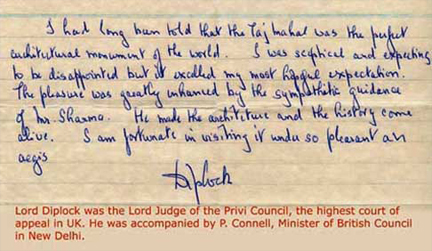 I had long been told that the Taj mahal was the perfect
architectural monument of the world. I was sceptical and expecting
to be disappointed but it excelled my most hopeful expectation.
The pleasure was greatly enhanced by the sympathetic guidance
of Mr. Sharma. He made the architecture and the history come
alive. I am fortunate in visiting it under so pleasant an
aegis
Diplock
Lord Diplock was the Lord Judge of the Privi Council, the highest court of
appeal in UK. He was accompanied by P. Connell, Minister of British Council
in New Delhi.